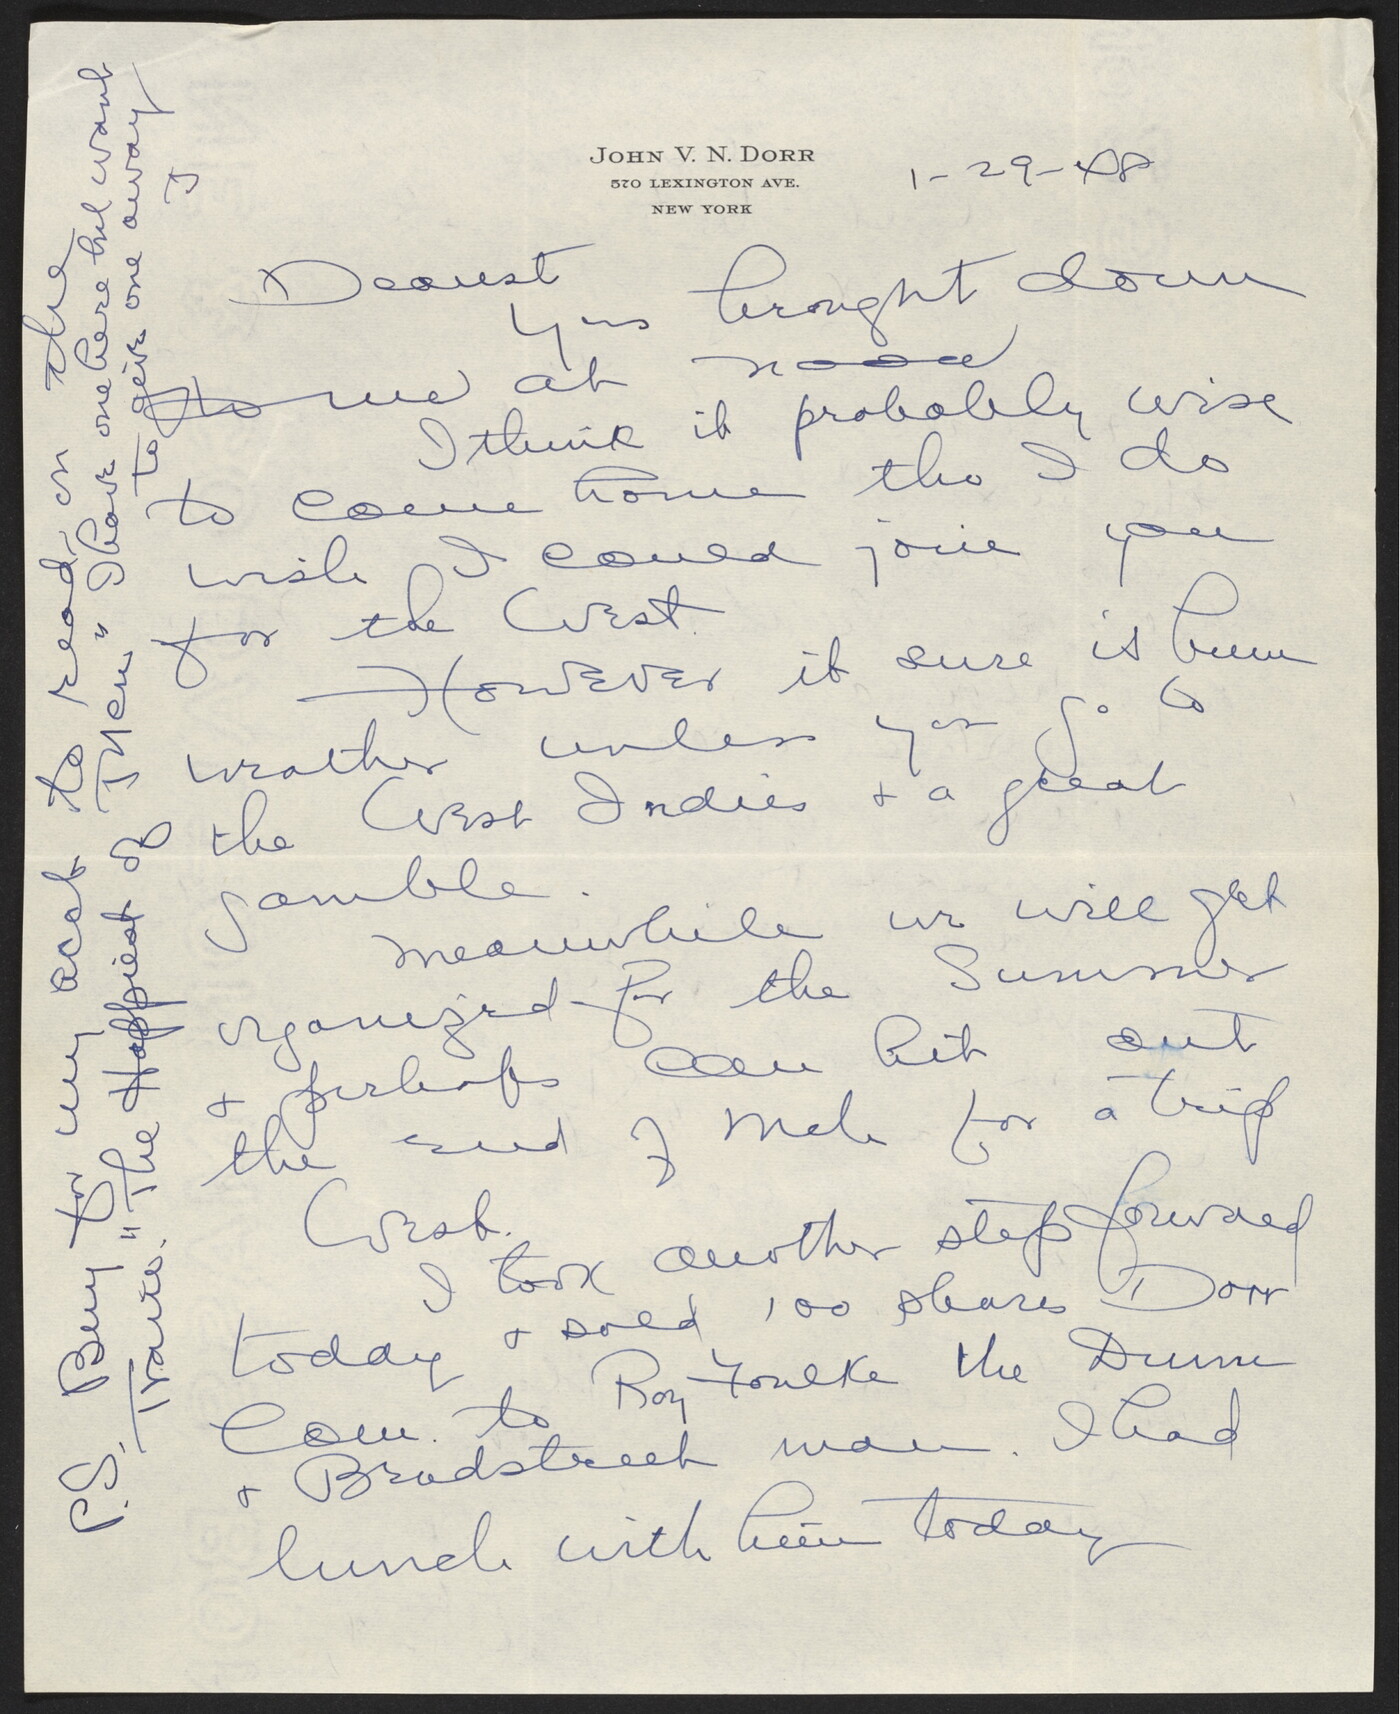 JOHN V. N. DORR
570 LEXINGTON AVE.
NEW YORK
1-29-48
Dearest
Yrs brought down
to me at noon
I think it probably wise
to come home tho I do
wish I could join you
for the West.
However it sure is bum
weather unless you go to
the West Indies & a great
gamble.
Meanwhile we will get
organized for the Summer
& perhaps can hit out
the end of Mch for a trip
West.
I took another step forward
today & sold 100 shares Dorr
Com. to Roy Foulke the Dunn
& Bradstreet man. I had
lunch with him today
P.S. Buy for my acct to read, on the
Train. "The Happiest of Men" I have one here but want
to give one away
J